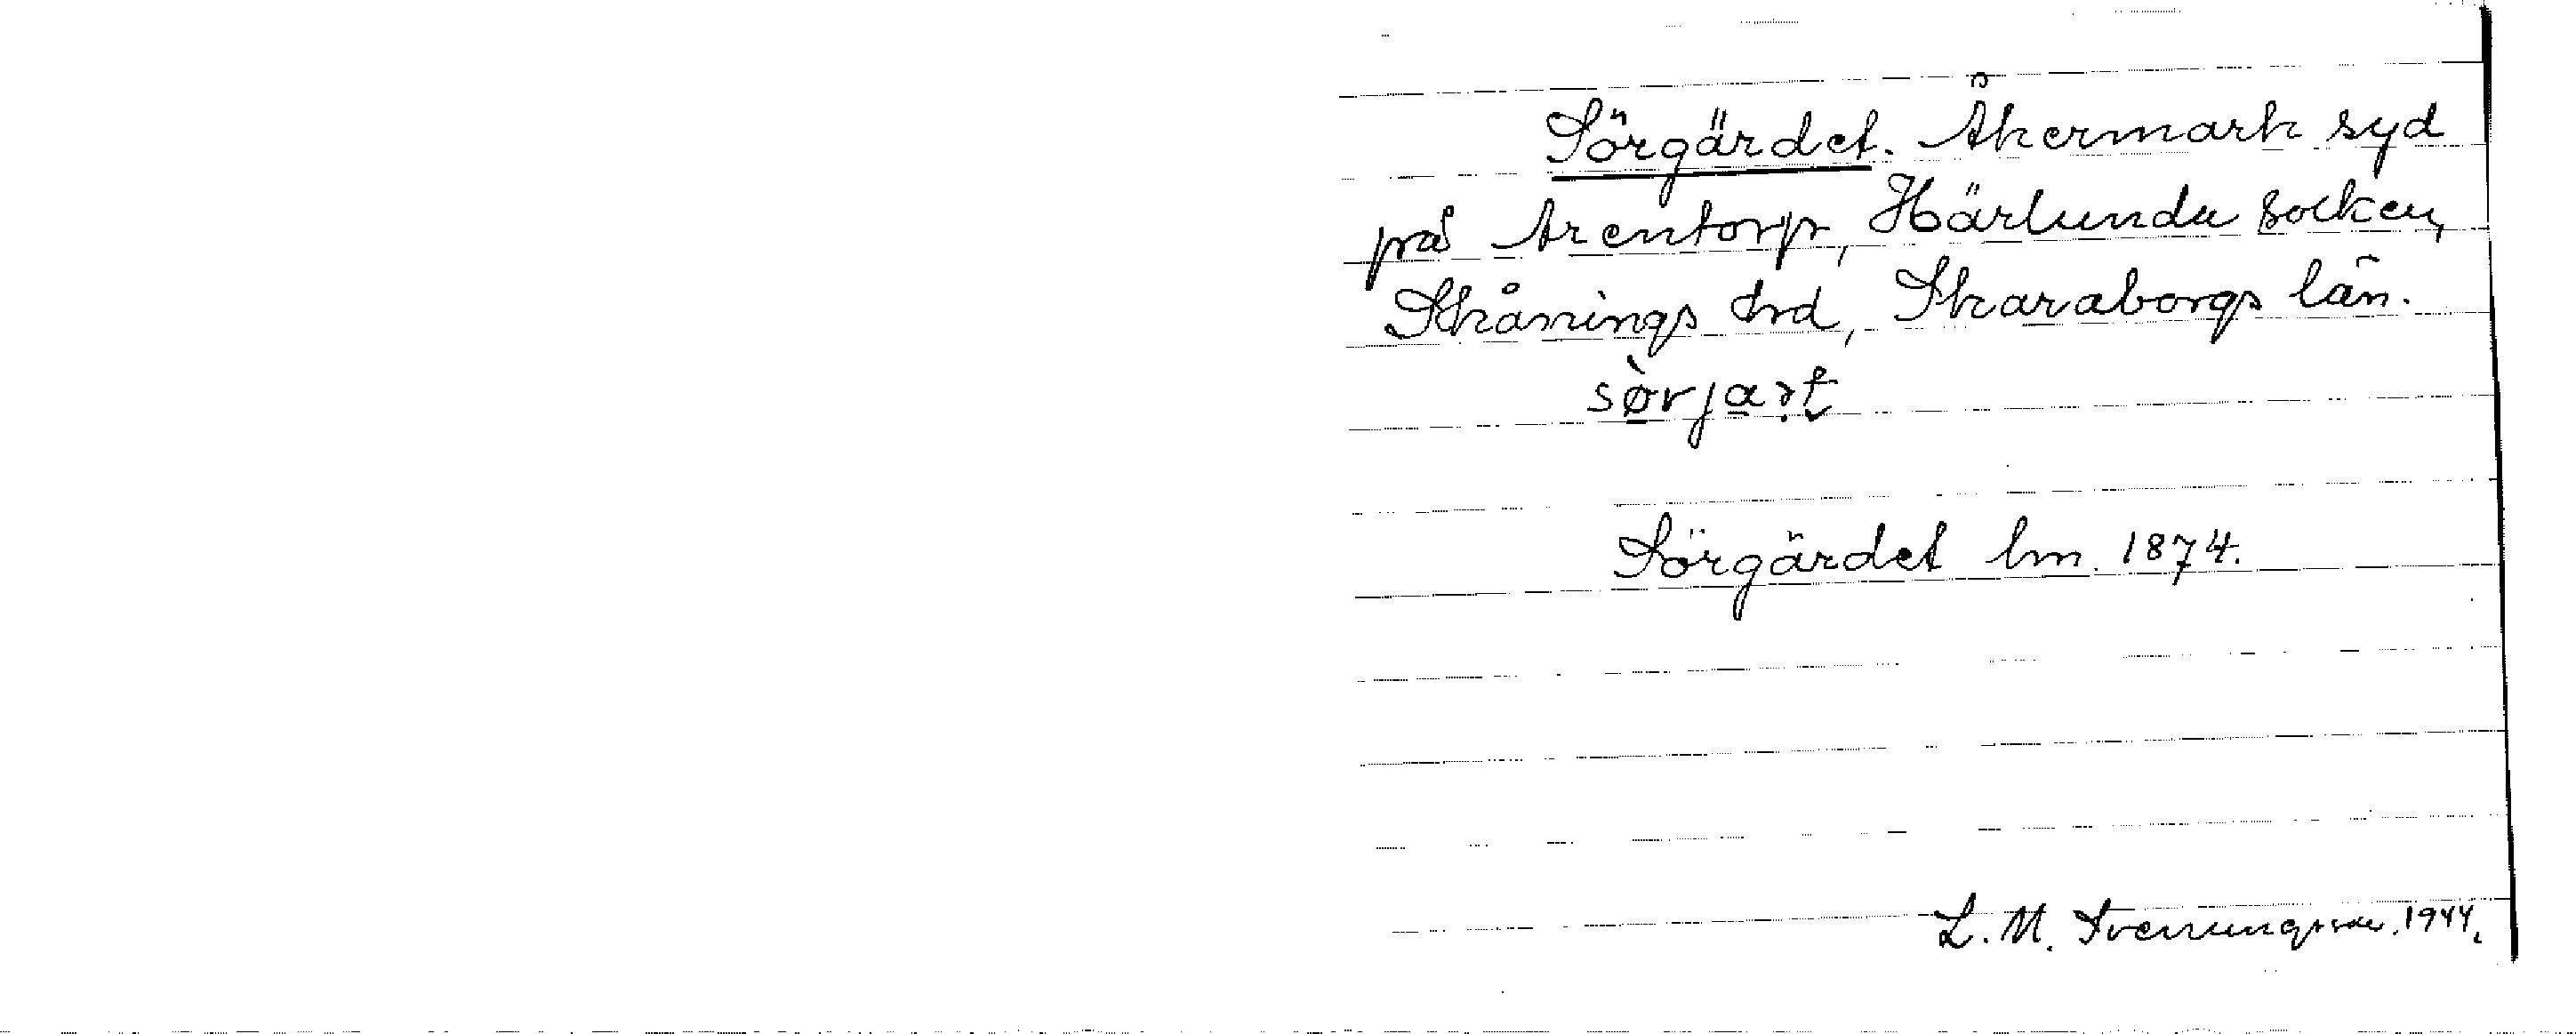 Sörgärdet. Åkermark syd
på Arentorp, Härlunda socken,
Skånings hrd, Skaraborgs län.
sørjaṛt
Sörgärdet lm. 1874.
L. M. 1944.